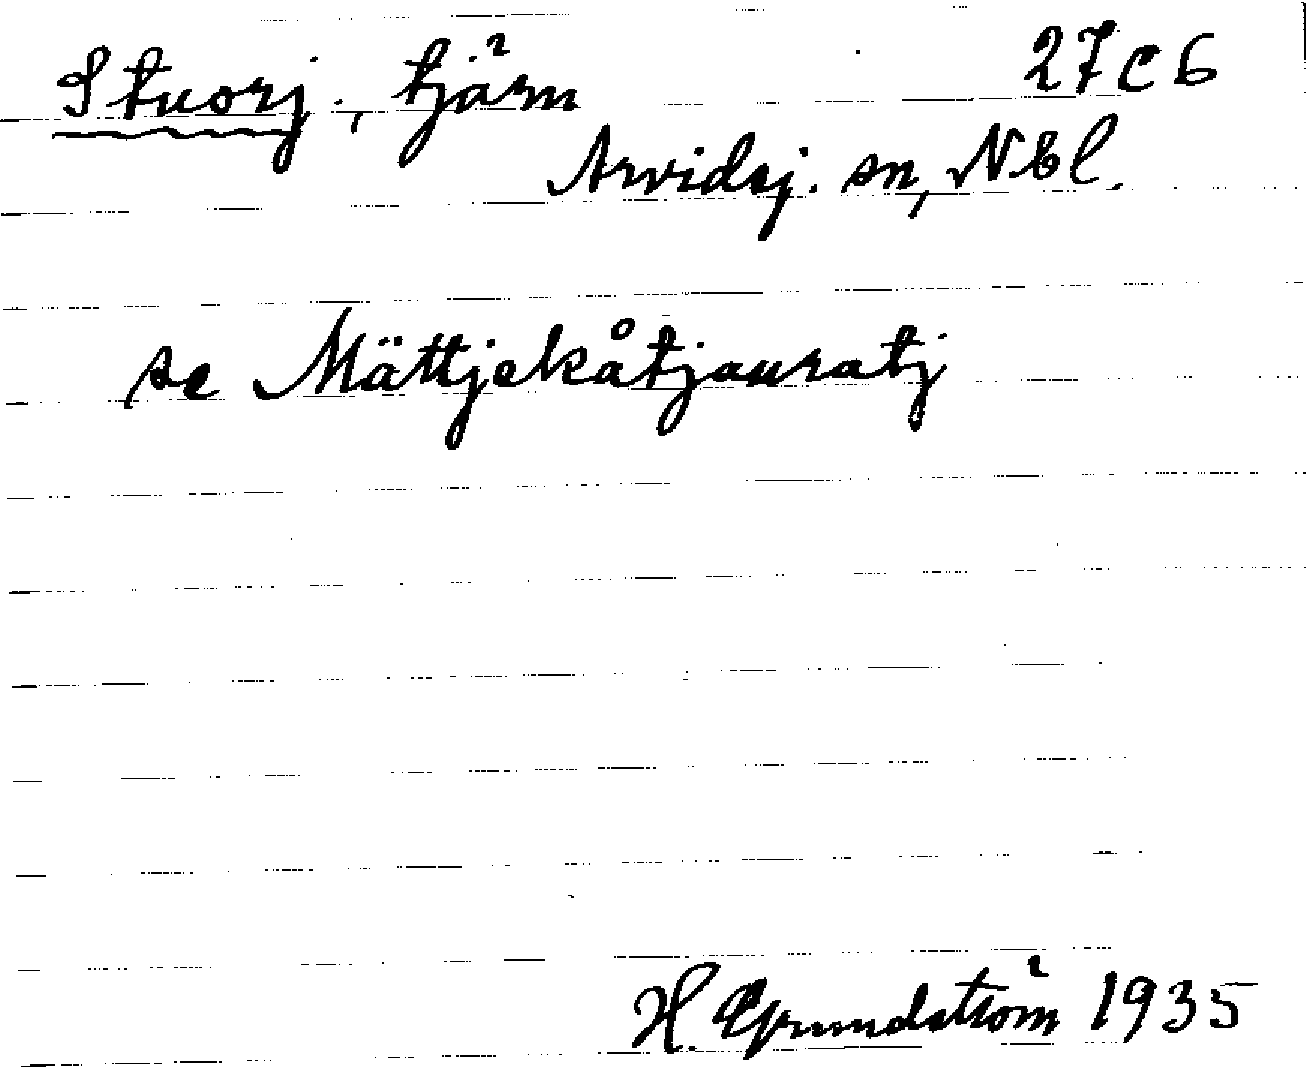 Stuorj., tjärn 27 c 6
Arvidsj. sn, Nbl.
se Mättjekåtjauratj
H. Grundström 1935